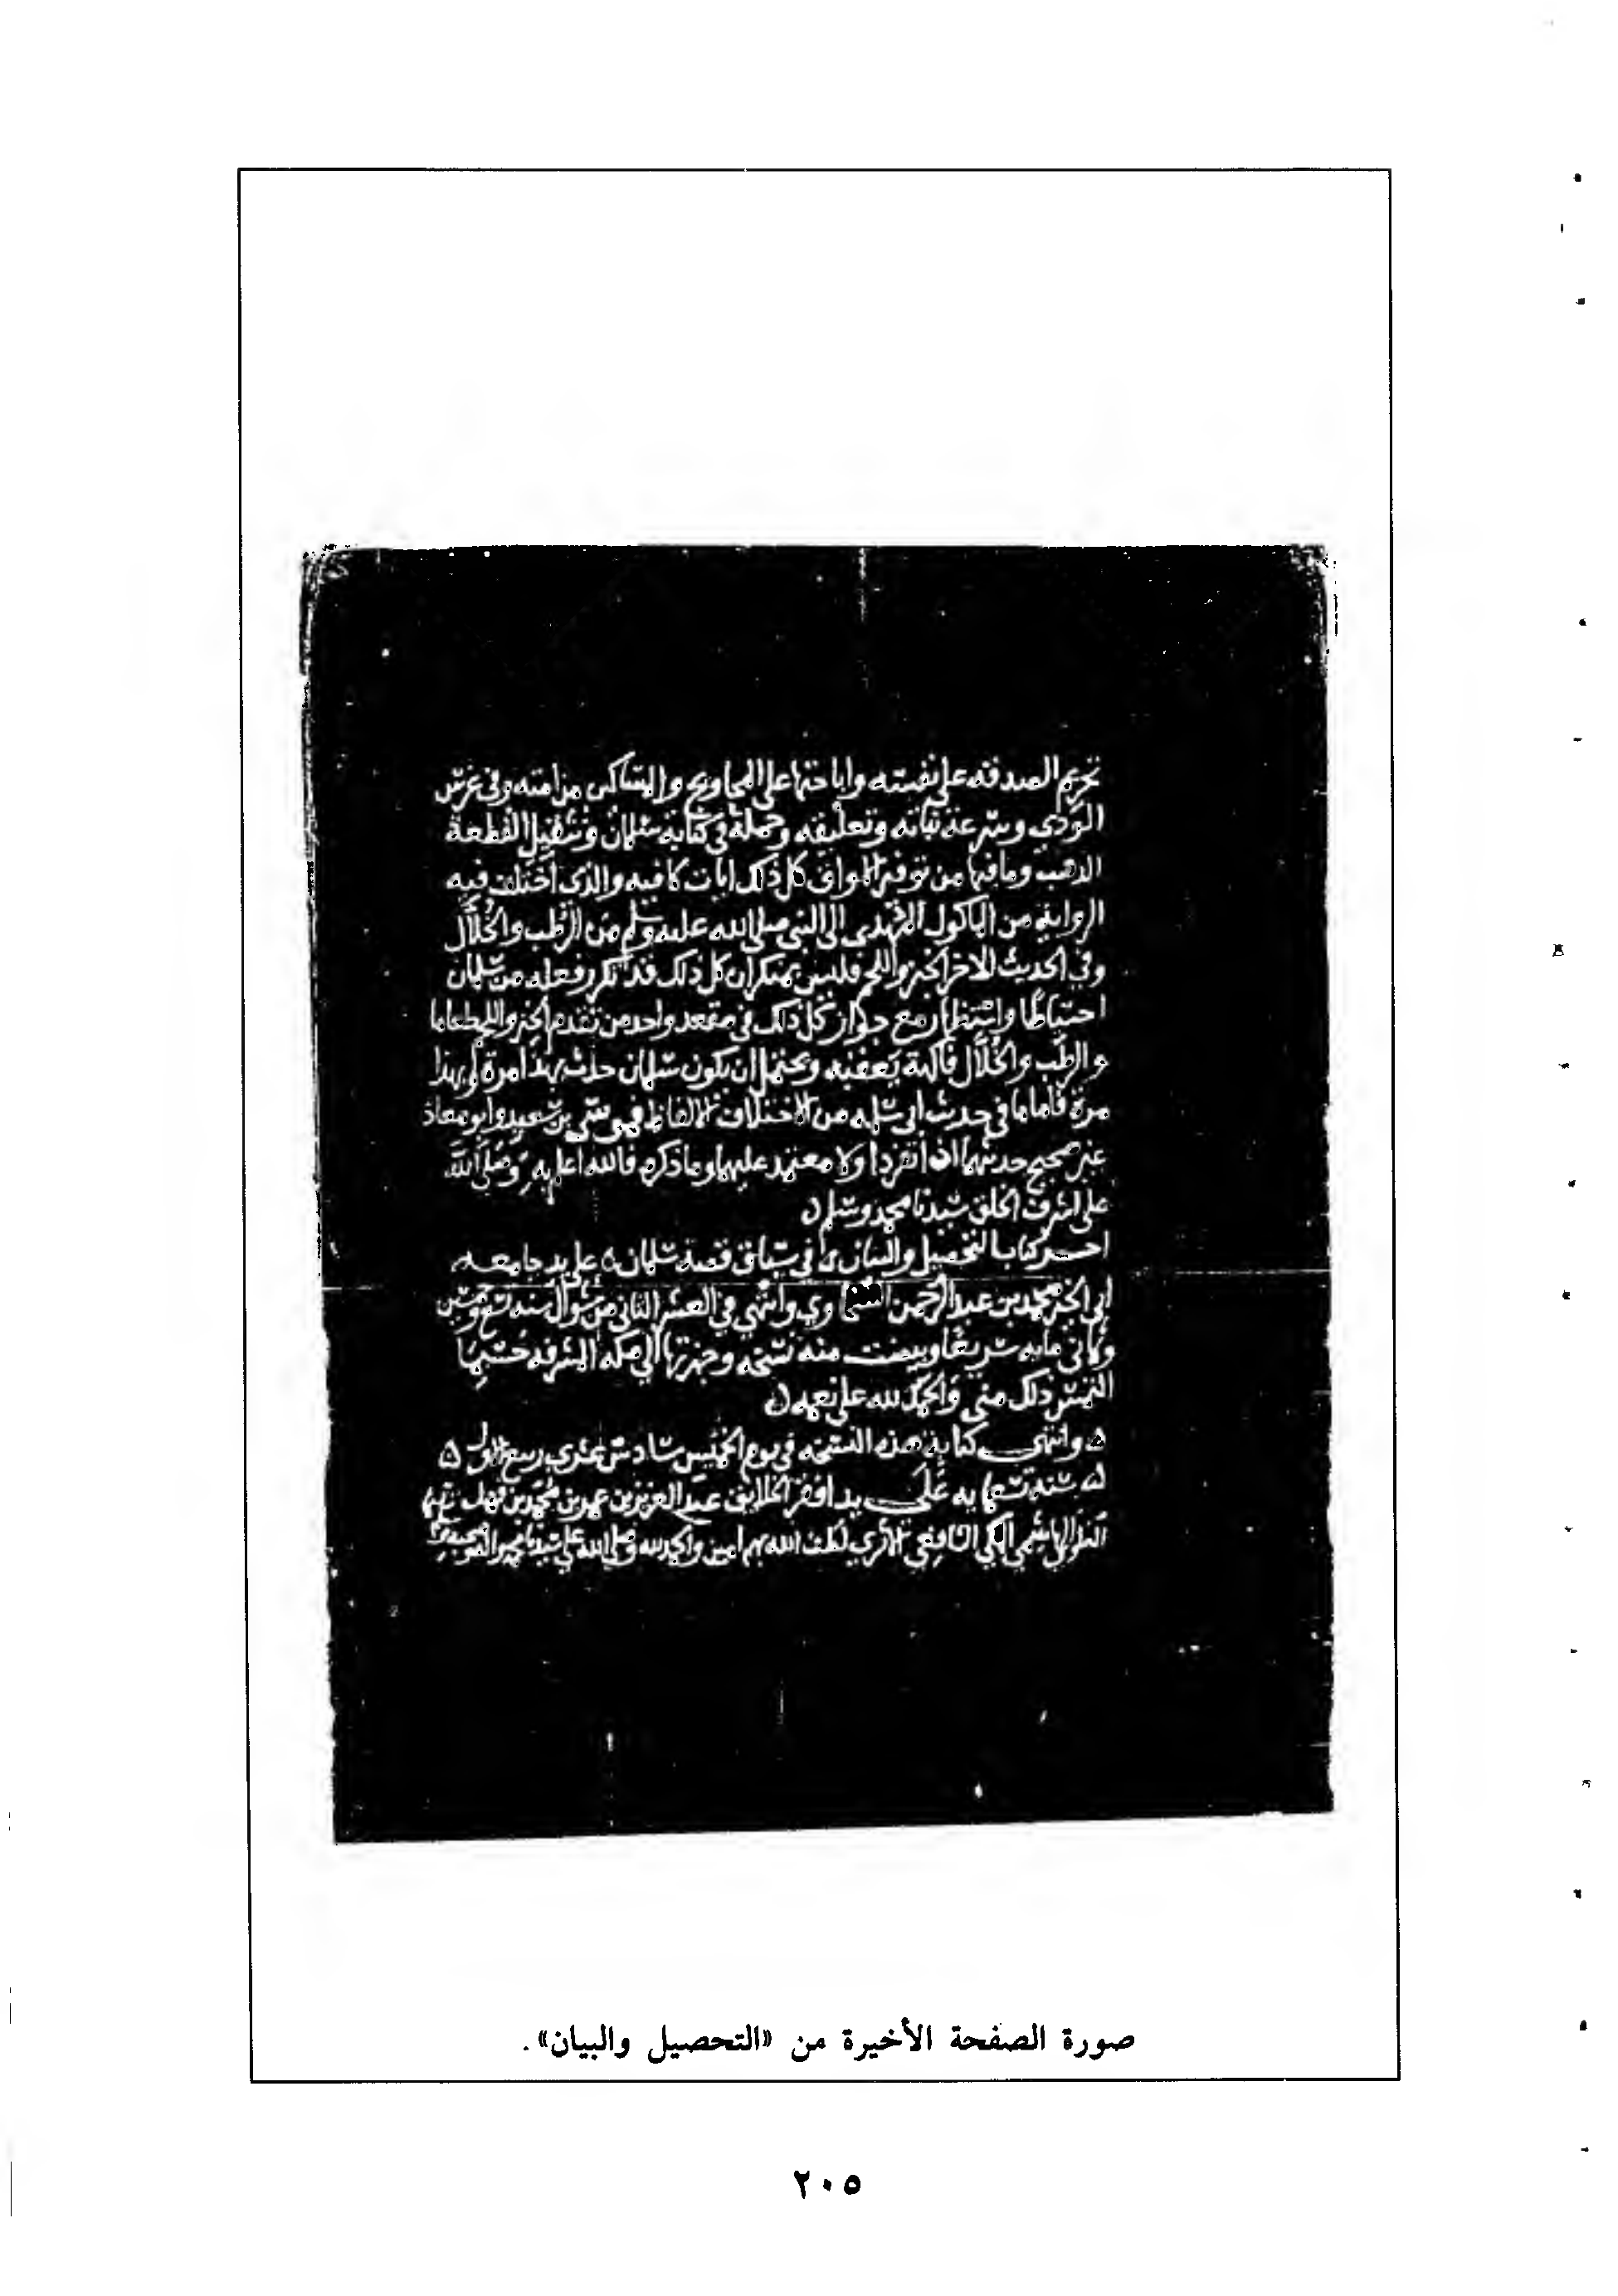 تحريم الصدقة على نفسه واباحتها على المحاويج والمساكين من امته وفي غرس
الودي وسرعة نباته وتعليقه وحمله في كتابة سلمان وتثقيل القطعة
الذهب وما فيها من توفير الاواقي كل ذلك ايات كافيه والذي اختلف فيه
الرواية من الماكول المهدى الى النبي صلى الله عليه وسلم من الرطب والخلال
وفي الحديث الاخر الخبز واللحم فليس بمنكر ان كل ذلك قد تكرر فعله من سلمان
احتياطا واستظهارا مع جواز كل ذلك في مقعد واحد من تقدم الخبز واللحم طعاما
والرطب والخلال فاكهة يعقبه ويحتمل ان يكون سلمان حدث بهذا مرة وبهذا
مرة فاما ما في حديث ابي سلمه من الاختلاف الالفاظ فموسى بن سعيد وابو معاذ
غير صحيح حديثهما اذا انفردا ولا معتمد عليهما وما ذكره فالله اعلم به وصلى الله
على اشرف الخلق سيدنا محمد وسلم
اخر كتاب التحصيل والبيان في سياق قصة سلمان على يد جامعه
ابي الخير محمد بن عبد الرحمن السخاوي وانتهى في العشر الثاني من شوال سنة تسع وخمسين
وثماني مايه شريفا وبيضت منه نسخه وجهزتها الى مكة المشرفه حسبما
التمس ذلك مني والحمد لله على نعمه
وانتهى كتابة هذه النسخه في يوم الخميس سادس عشري ربيع الاول
سنة تسعمايه على يد افقر الخلايق عبد العزيز بن عمر بن محمد بن فهد
الهاشمي المكي الشافعي الاثري لطف الله بهم امين والحمد لله وصلى الله على سيدنا محمد واله وصحبه وسلم
صورة الصفحة الأخيرة من «التحصيل والبيان».
٢٠٥